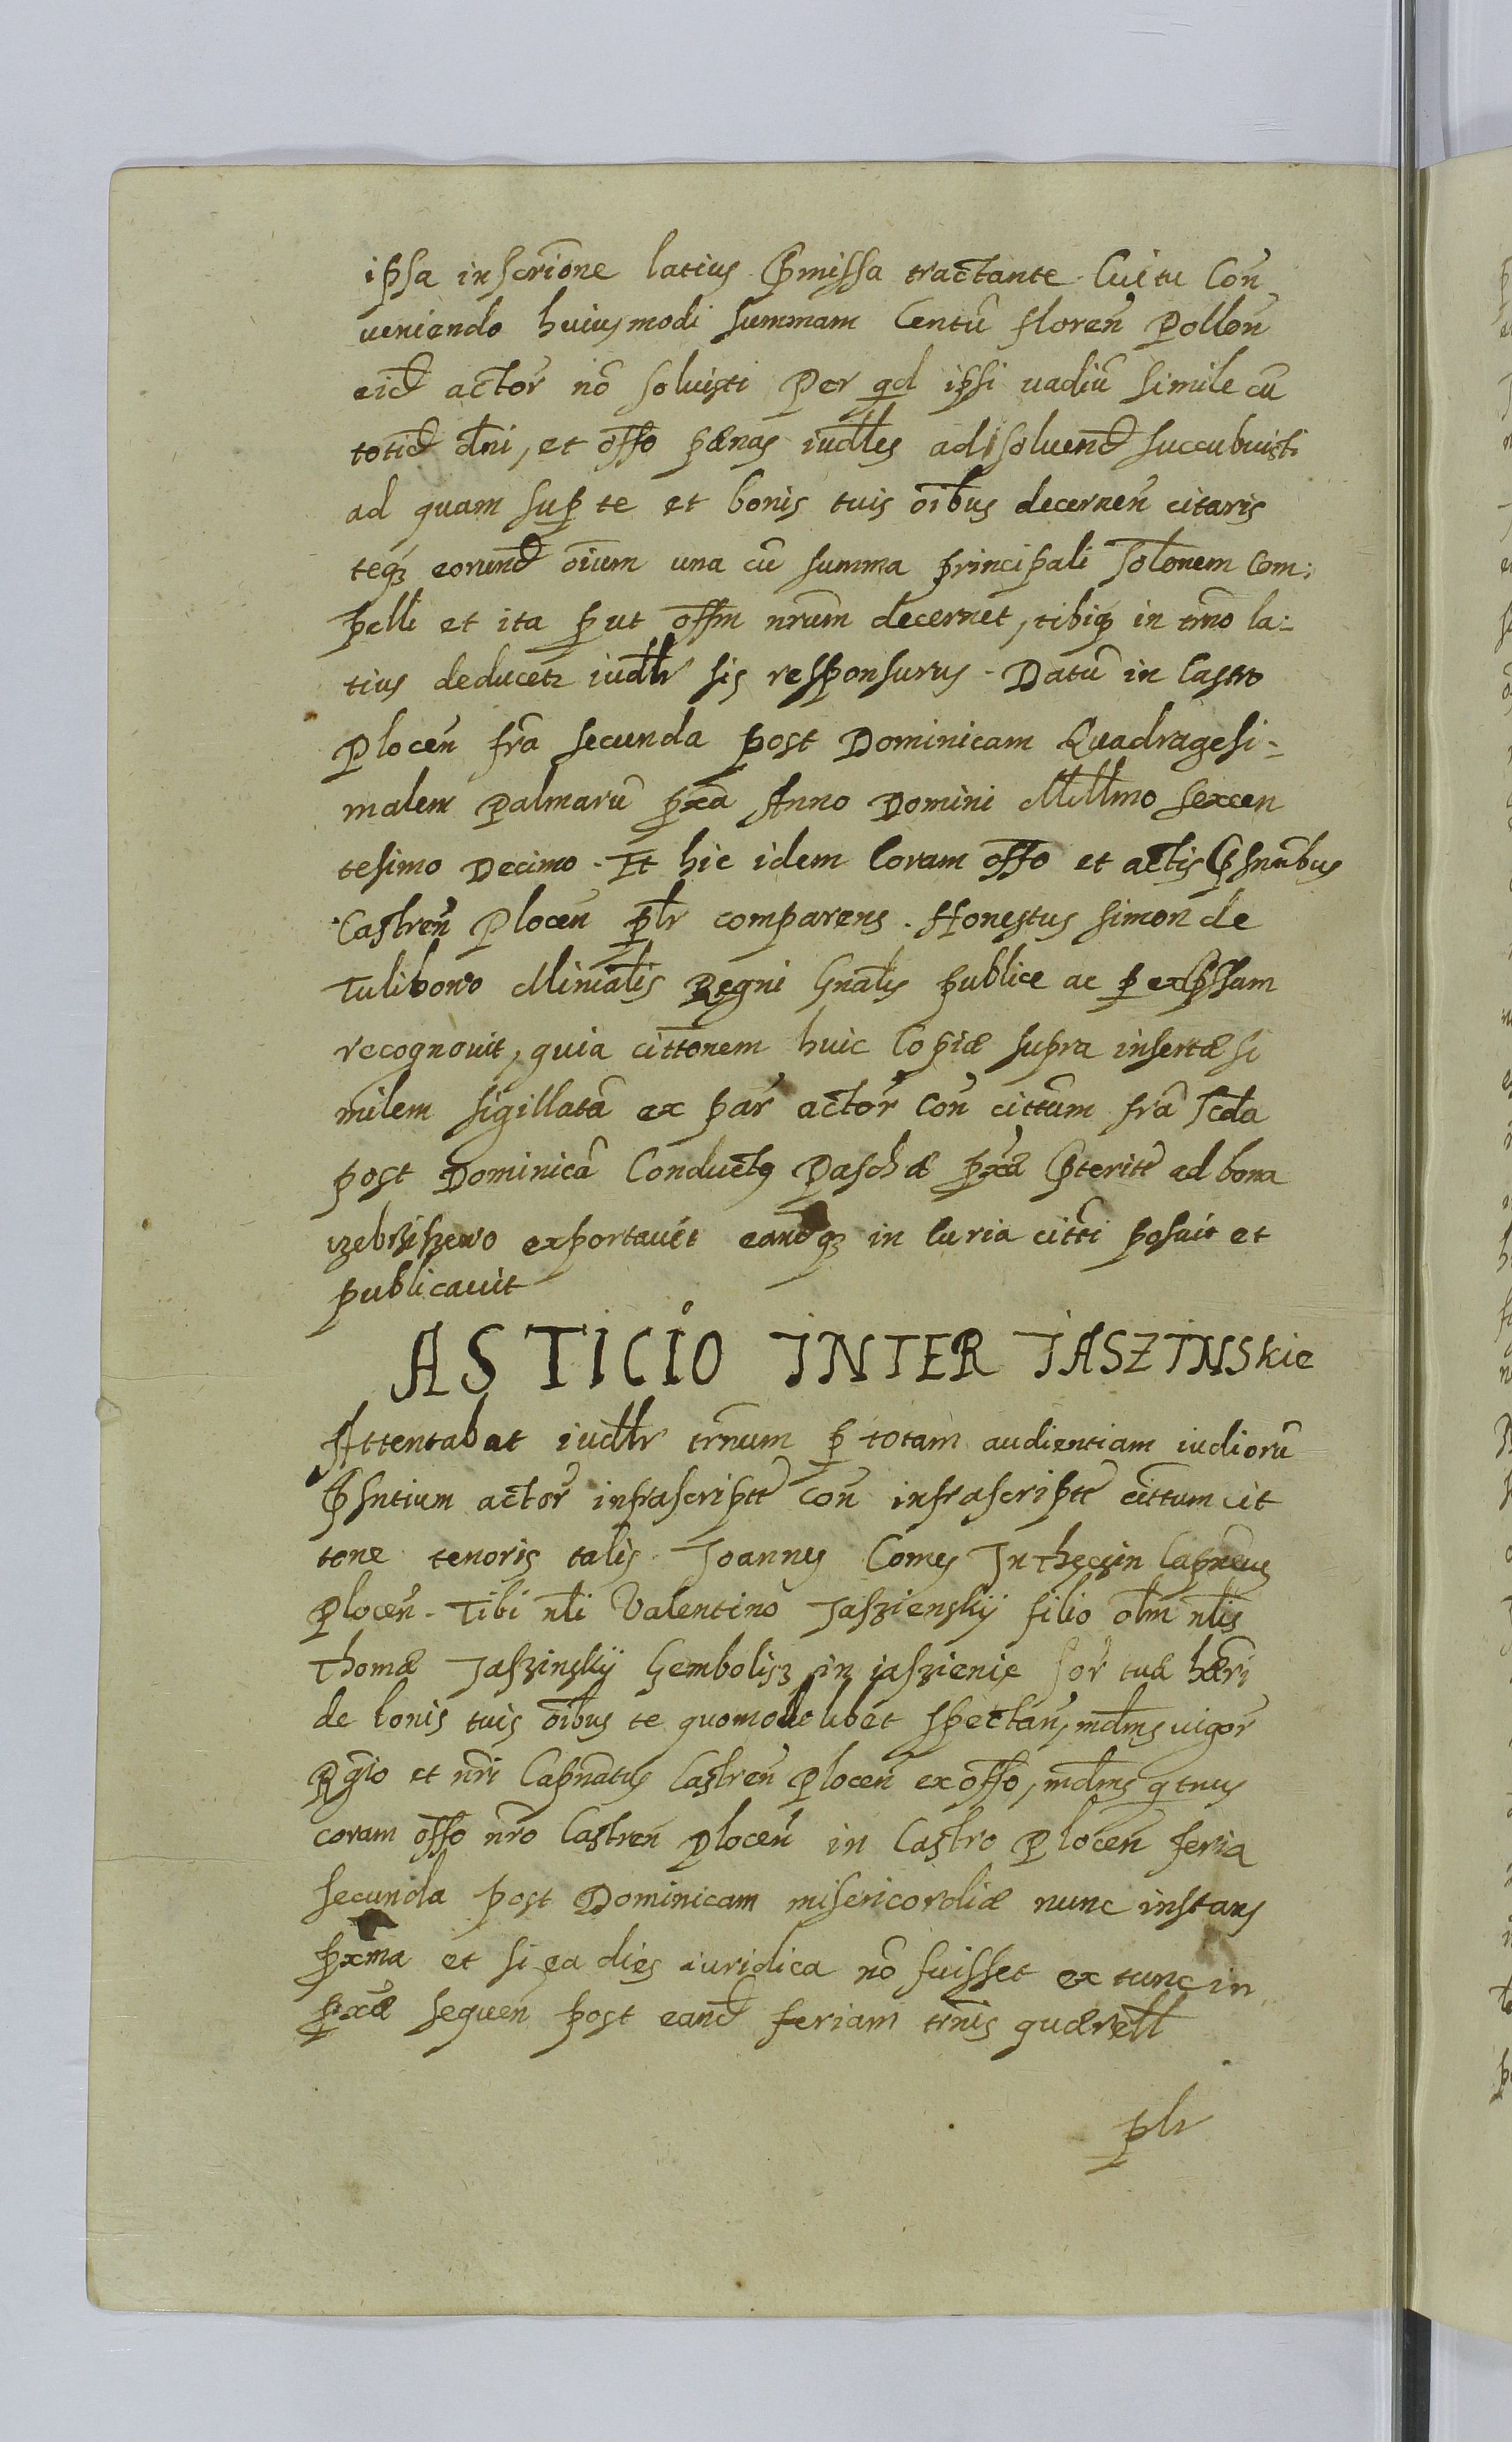 ipsa inscrione latius Pmissa tractante. Cui tu Con
ueniendo huiusmodi summam Centū floreñ Polloñ
eid actor nō soluisti Per qd ipsi uadiū simile cū
totid dni, et offo pænas iudles ad soluend succubuisti
ad quam sup te et bonis tuis oibus decerneñ citaris
teqz eorund oium una cū summa principali solonem Com:
pelli et ita put offm nrum decernet, tibiqz in tmo la:
tius deducetz iudlr sis responsurus. Datū in Castro
Ploceñ fra secunda post Dominicam Quadragesi-
malem Palmarū pxa Anno Domini Millmo sexcen
tesimo Decimo. Et hic idem Coram offo et actis Psntibus
Castreñ Ploceñ plr comparens. Honestus simon de
Tulibowo Minialis Regni Gnalis publice ac p expssam
recognouit, quia cittonem huic Copiæ supra insertæ si
milem sigillatā ex par actor Coñ cittum fra scda
post Dominicā Conductus Paschæ pxa Pterite ad bona
 exportauit eandqz in Curia citti posuit et
publicauit
ASTICIO INTER IASZINSKie
Attentabat iudlr trnum p totam audientiam iudiorū
Psntium actor infrascriptt Coñ infrascriptt cittum cit
tone tenoris talis. Joannes Comes In Thęczin Capneus
Ploceñ. Tibi nli Valentino Jaszienskÿ filio olm nlis
Thomæ Jaszinskÿ Gembolisz in jaszienie sor tuæ hæri
de bonis tuis oibus te quomodolubet spectañ, mdms uigor
Rgio et nri Capnatus Castreñ Ploceñ ex offo, mdms qtnus
coram offo nro Castreñ Ploceñ in Castro Ploceñ feria
secunda post Dominicam misericordiæ nunc instans
pxma et si ea dies iuridica nō fuisset ex tunc in
pxæ sequeñ post eand feriam trnis quærell
plr